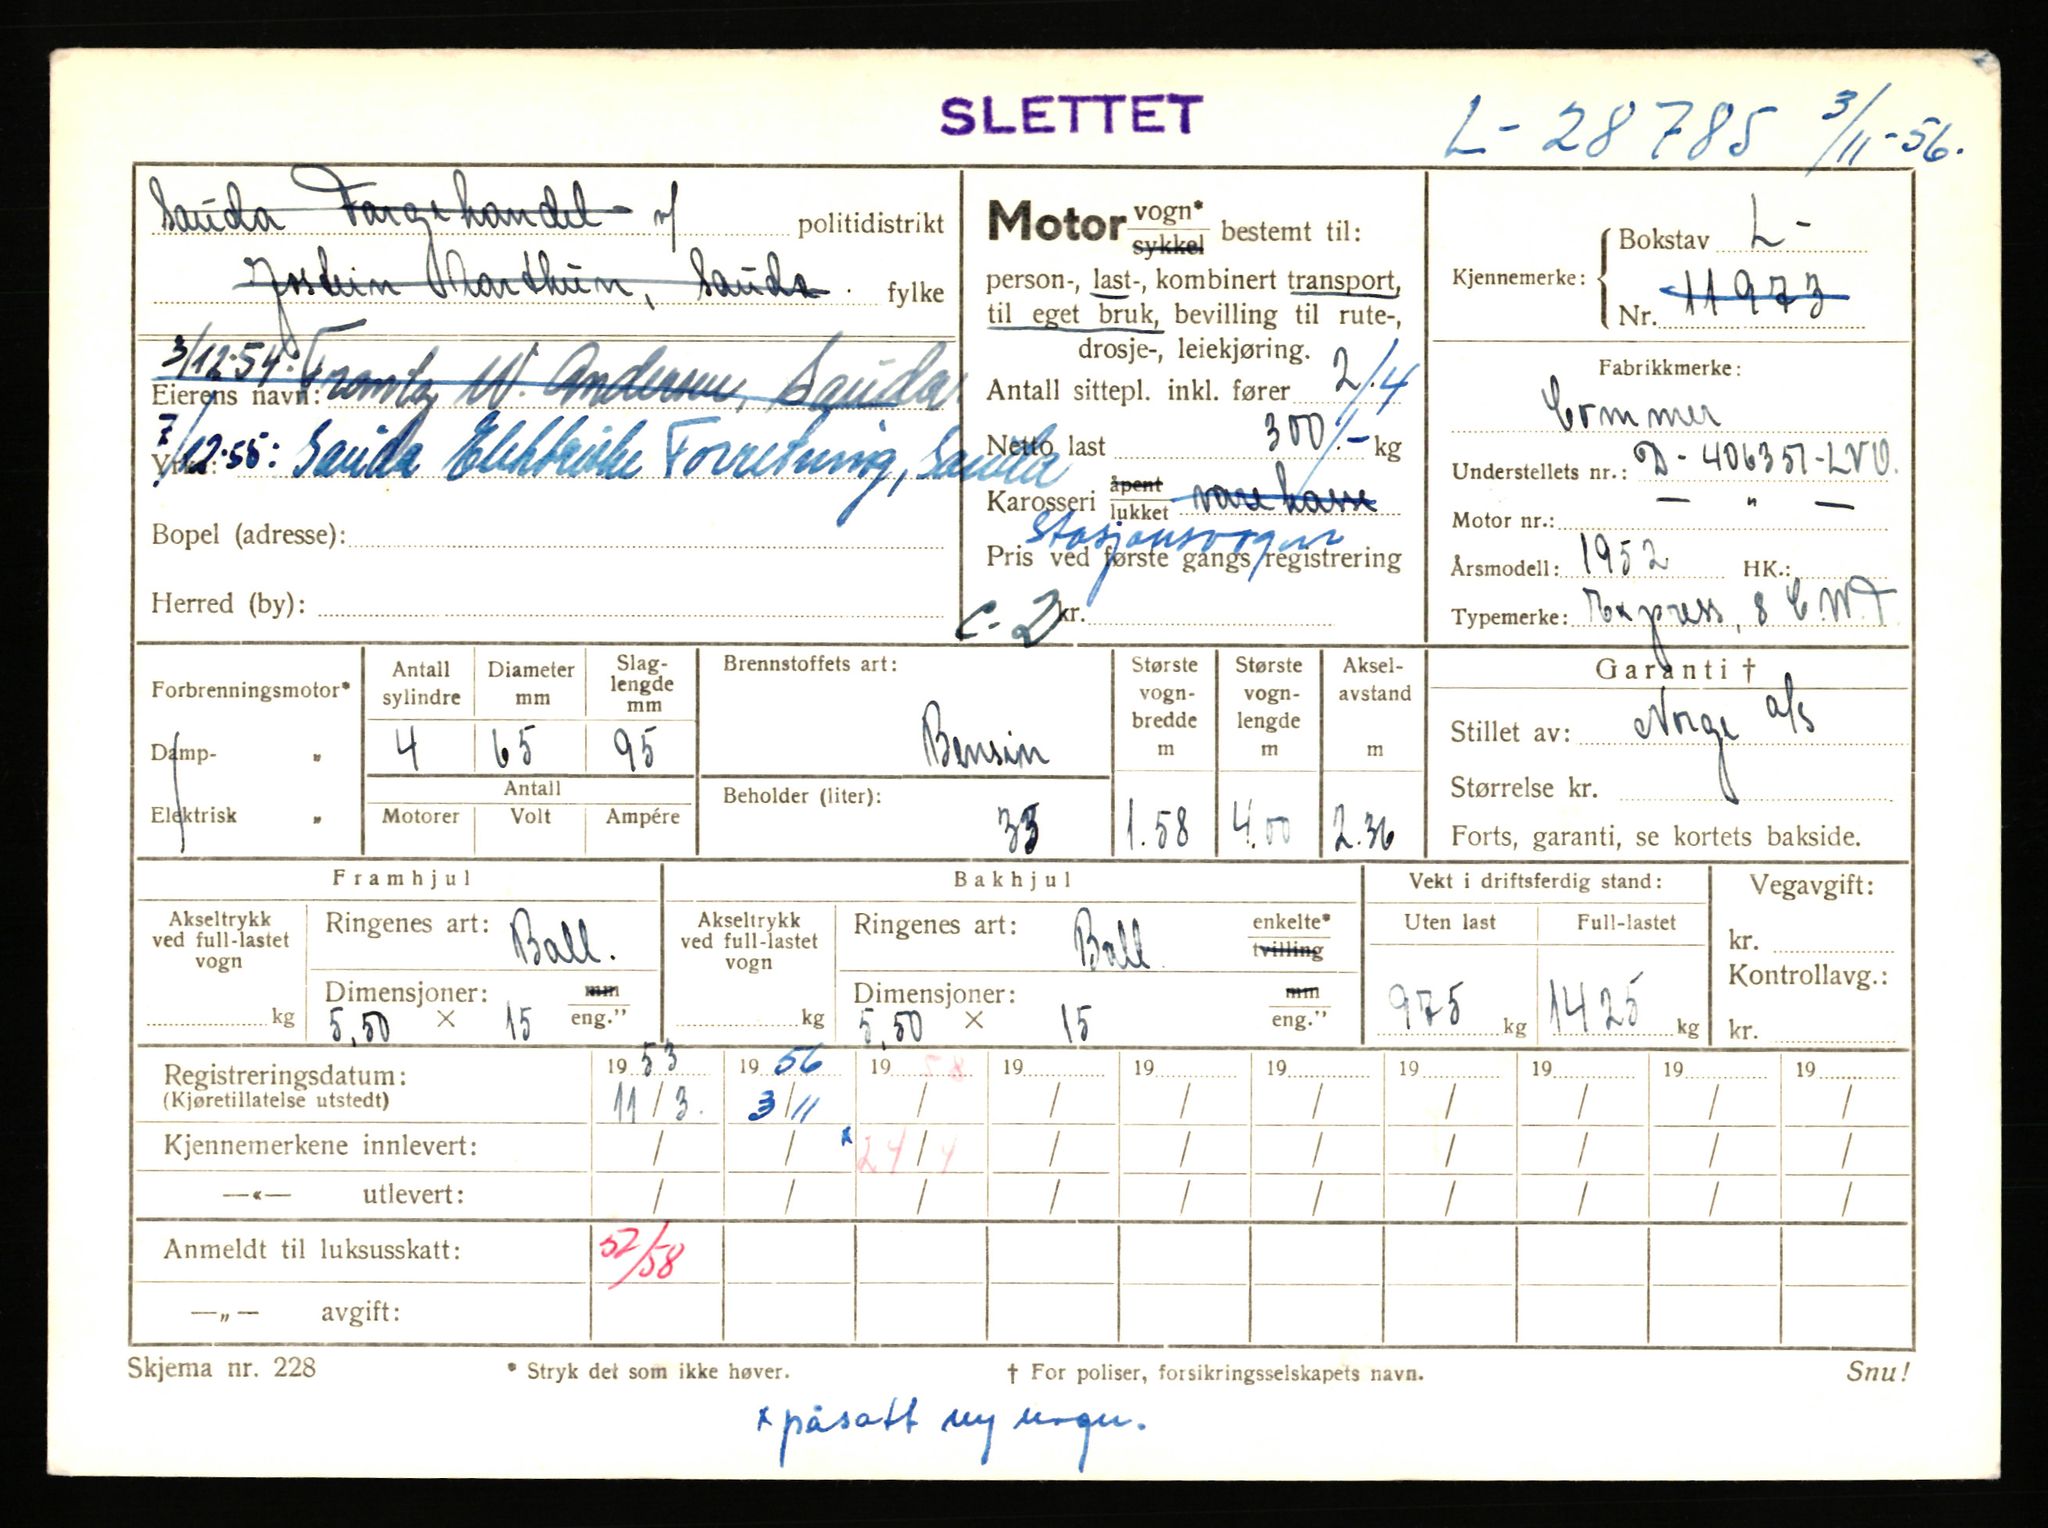 SLETTET
L- 28785 3/11-56.
Sauda Fargehandel v/ politidistrikt
Jostein Marthun, Sauda. fylke
3/12-54: W. Andersen, Sauda
Eierens navn:
7/12-55: Sauda Elektriske Forretning, Sauda
Yrke:
Bopel (adresse):
Herred (by):
Motor vogn* sykkel bestemt til:
person-, last-, kombinert transport,
til eget bruk, bevilling til rute-,
drosje-, leiekjøring.
Antall sittepl. inkl. fører 2/4
Netto last 300/- kg
Karosseri åpent lukket varekasse
Stasjonsvogn
Pris ved første gangs registrering
C-2 kr.
Kjennemerke: Bokstav L-
Nr. 11973
Fabrikkmerke:
Commer
Understellets nr.: D-406351-LVO.
Motor nr.: — " —
Årsmodell: 1952 HK.:
Typemerke: Express, 8 C.W.T.
Forbrenningsmotor*
Damp- „
Elektrisk „
Antall sylindre 4
Diameter mm 65
Slag-lengde mm 95
Antall
Motorer Volt Ampére
Brennstoffets art:
Bensin
Beholder (liter):
33
Største vogn-bredde m 1.58
Største vogn-lengde m 4.00
Aksel-avstand m 2.36
Garanti †
Stillet av: Norge a/s
Størrelse kr.
Forts, garanti, se kortets bakside.
Framhjul
Akseltrykk ved full-lastet vogn kg
Ringenes art: Ball.
Dimensjoner: mm eng."
5,50 × 15
Bakhjul
Akseltrykk ved full-lastet vogn kg
Ringenes art: Ball enkelte* tvilling
Dimensjoner: mm eng."
5,50 × 15
Vekt i driftsferdig stand:
Uten last 975 kg
Full-lastet 1425 kg
Vegavgift:
kr.
Kontrollavg.:
kr.
Registreringsdatum: 1953 1956 1958 19 19 19 19 19 19 19
(Kjøretillatelse utstedt) 11/3. 3/11 / / / / / / / /
Kjennemerkene innlevert: / / x 24/4 / / / / / / /
—«— utlevert: / / / / / / / / / /
Anmeldt til luksusskatt: 52/58
—„— avgift:
Skjema nr. 228 * Stryk det som ikke høver. † For poliser, forsikringsselskapets navn. Snu!
x påsatt ny vogn.